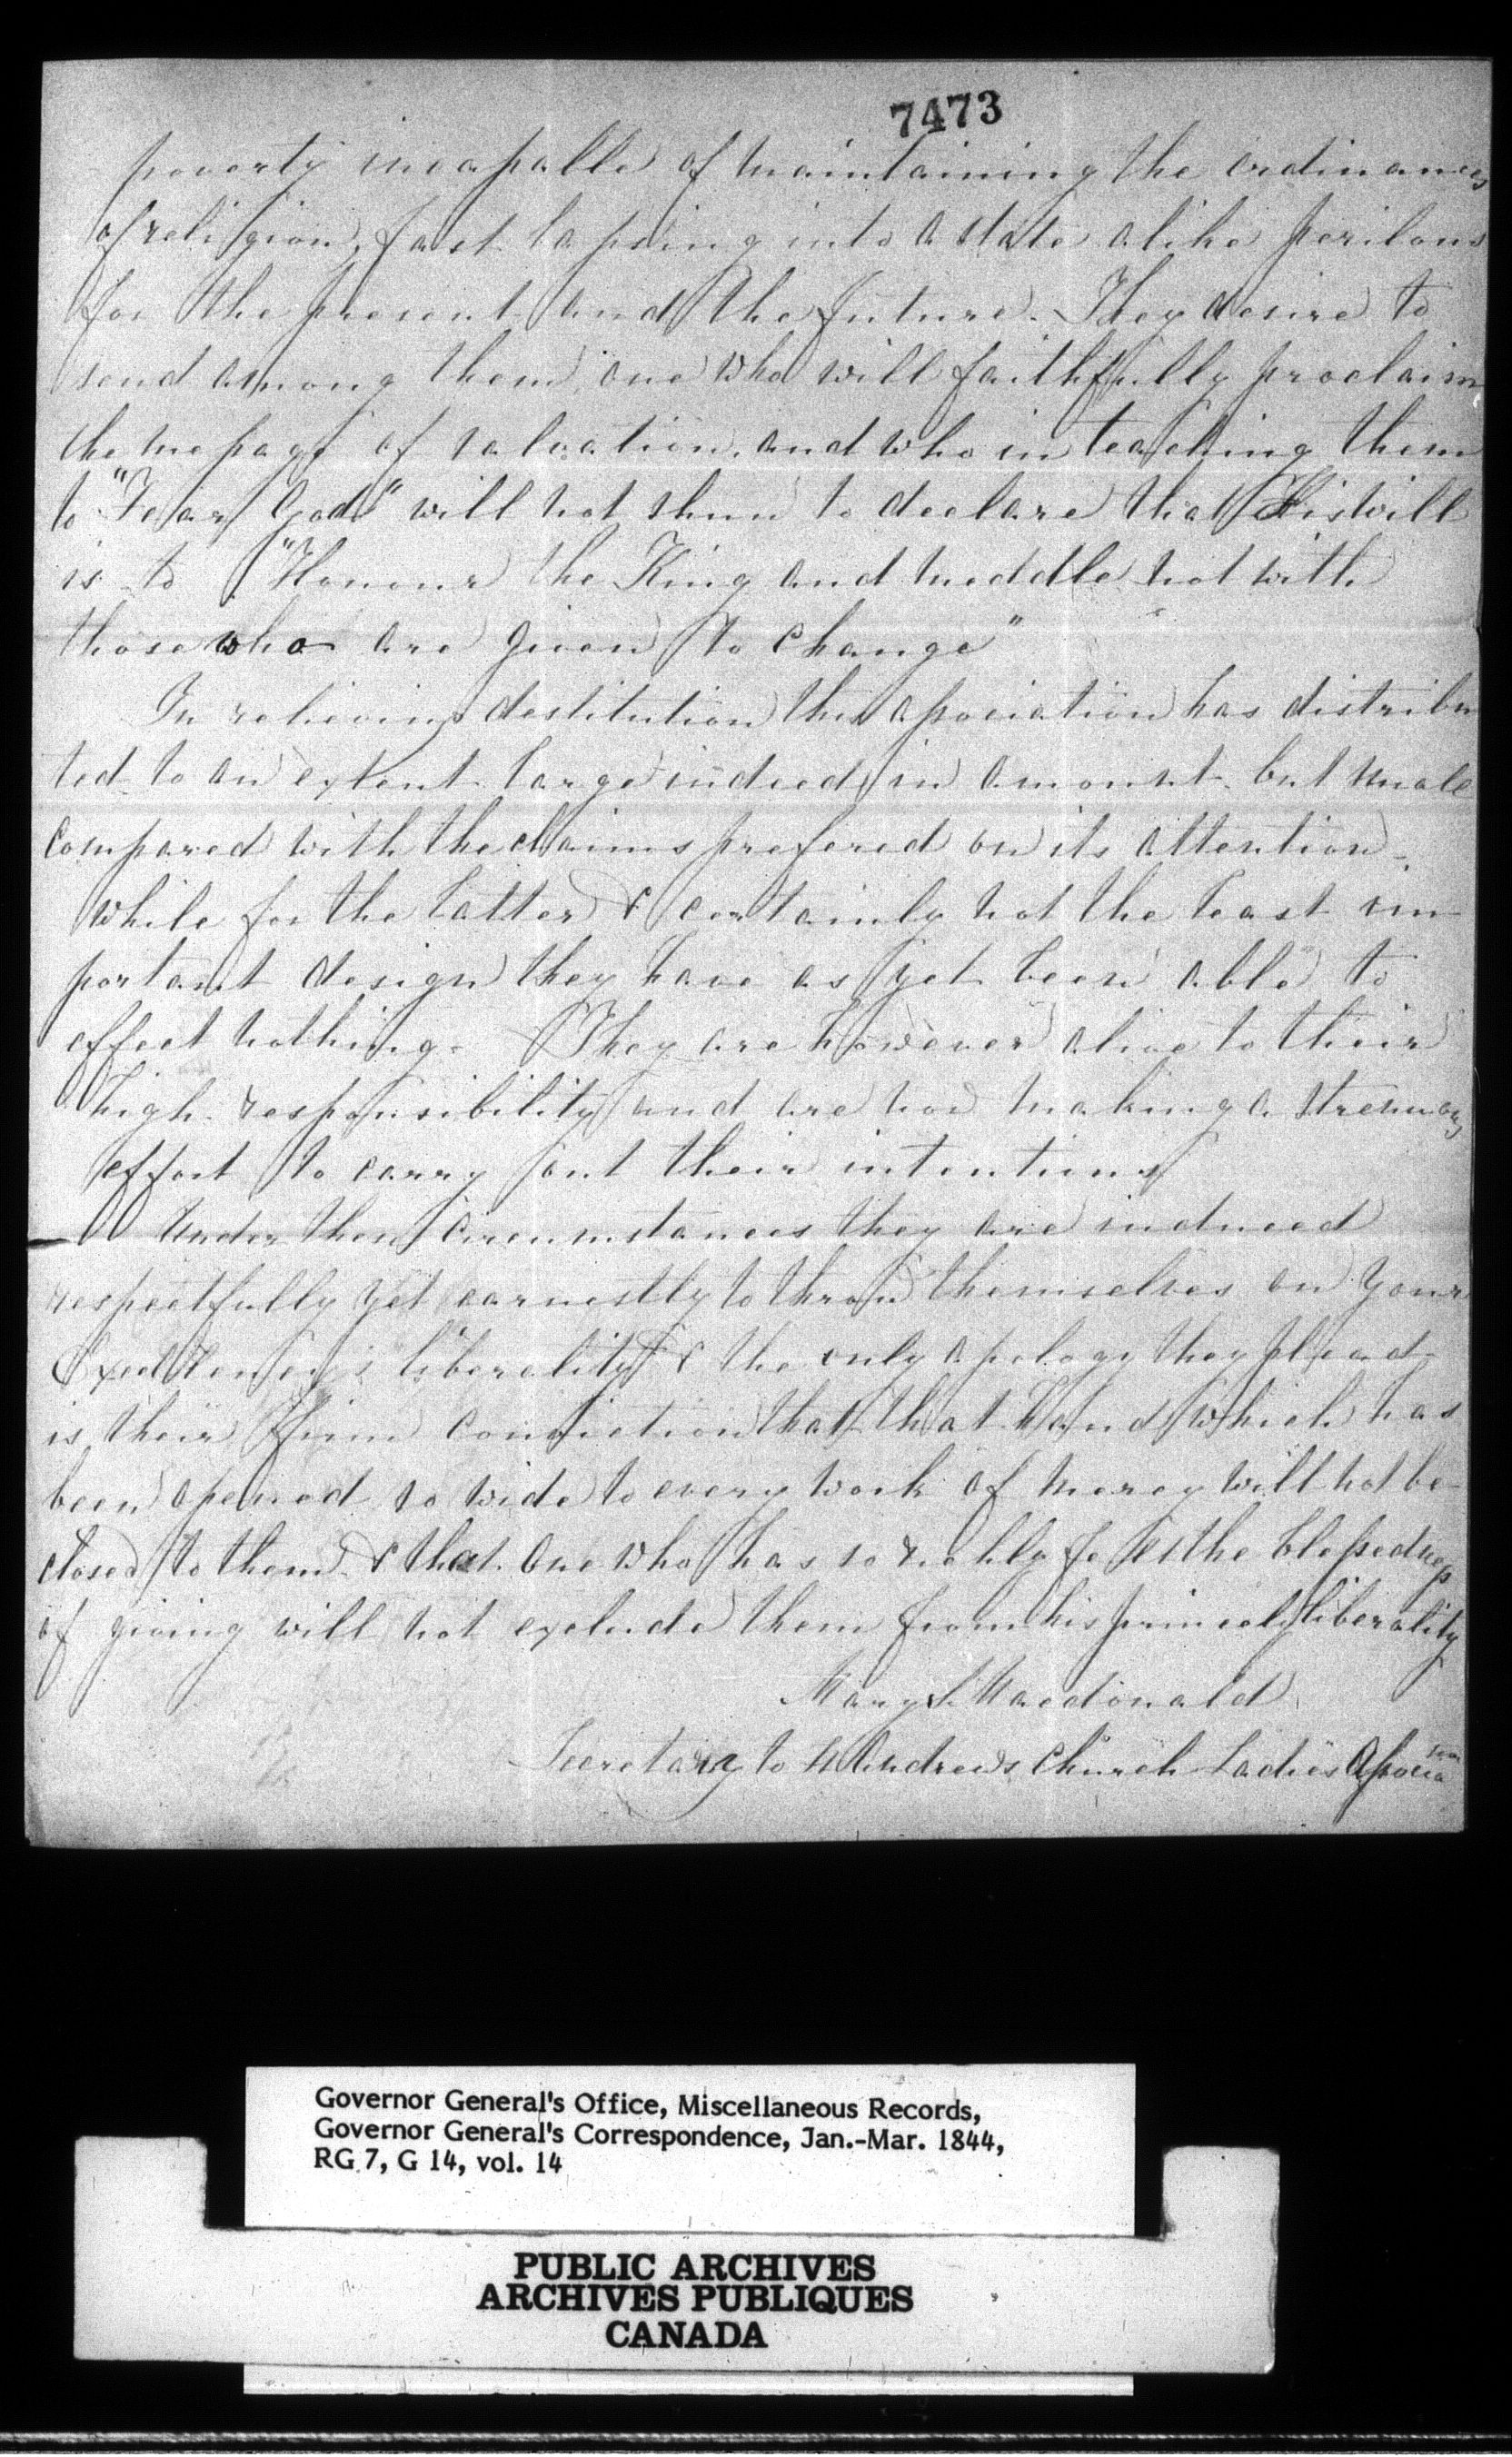 7473
poverty incapable of maintaining the ordinances
of religion, fast lapsing into a state alike perilous
for the present and the future. They desire to
send among them, one who will faithfully proclaim
the message of salvation, and who in teaching them
to "Fear God" will not shun to declare that His will
is to "Honour the King and meddle not with
those who are given to change"
In relieving destitution the association has distribu
ted to an extent large indeed in amount but small
compared with the claims prefered on its attention-
while for the latter & certainly not the least im-
portant design they have as yet been able to
effect nothing- They are however alive to their
high responsibility and are now making a strenuous
effort to carry out their intentions
Under these circumstances they are induced
respectfully yet earnestly to throw themselves on Your
Excellency's liberality & the only apology they plead-
is their firm conviction that that hand which has
been opened so wide to every work of mercy will not be-
closed to them- & that one who has so richly felt the blessedness
of giving will not exclude them from his princely liberality
Mary Macdonald
Secretary to St Andrews Church Ladies Associa tion
Governor General's Office, Miscellaneous Records,
Governor General's Correspondence, Jan.-Mar. 1844,
RG 7, G 14, vol. 14
PUBLIC ARCHIVES
ARCHIVES PUBLIQUES
CANADA